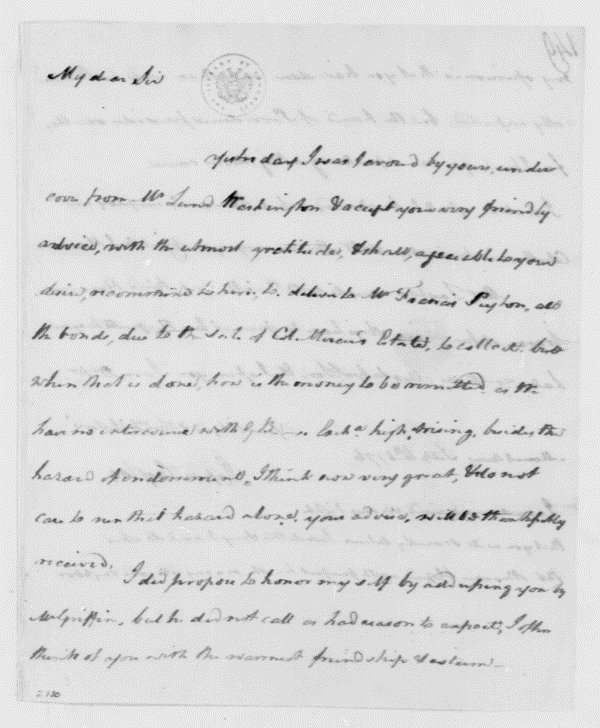 My dear Sir
Yesterday I was favourd by yours, under
cover from Mr Lund Washington & accept your very friendly
advice, with the utmost gratitude, & shall, agreeable to your
desire, recommend to him, to deliver to Mr Francis Peyton, all
the bonds, due to the sale of Col. Mercers Estate, to collect, but
when that is done, how is the money to be remitted. as the
have no intercourse with G. B. Excha high & rising. besides the
hazard of endorsments, I think now very great, & do not
care to run that hazard alone. your advice, will be thankfully
received.
I did propose to honor my self by addressing you by
Mr Griffin, but he did not call as had reason to expect, I often
think of you with the warmest friendship & esteem
2130